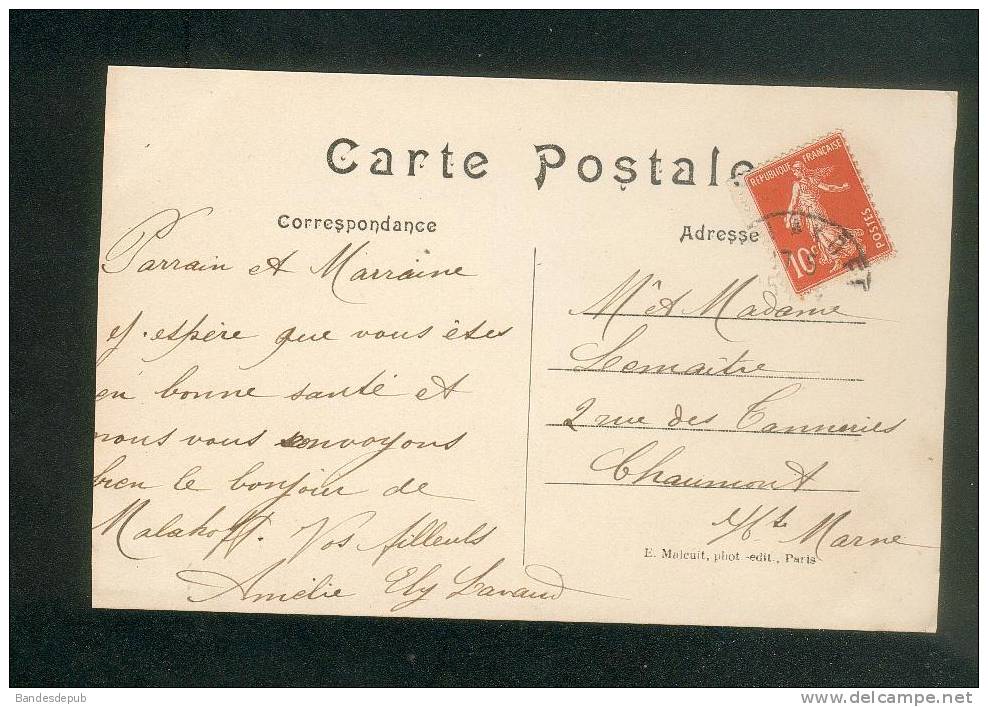 Carte Postale
Correspondance
Parrain et Marraine
J'espère que vous êtes
en bonne santé et
nous vous envoyons
bien le bonjour de
Malakoff. Vos filleuls
Amélie Ely Lavaud
Adresse
REPUBLIQUE FRANÇAISE
POSTES
10c
Mr et Madame
Lemaitre
2 rue des Tanneries
Chaumont
Hte Marne
E. Malcuit, phot.-edit., Paris
Bandesdepub
www.delcampe.net